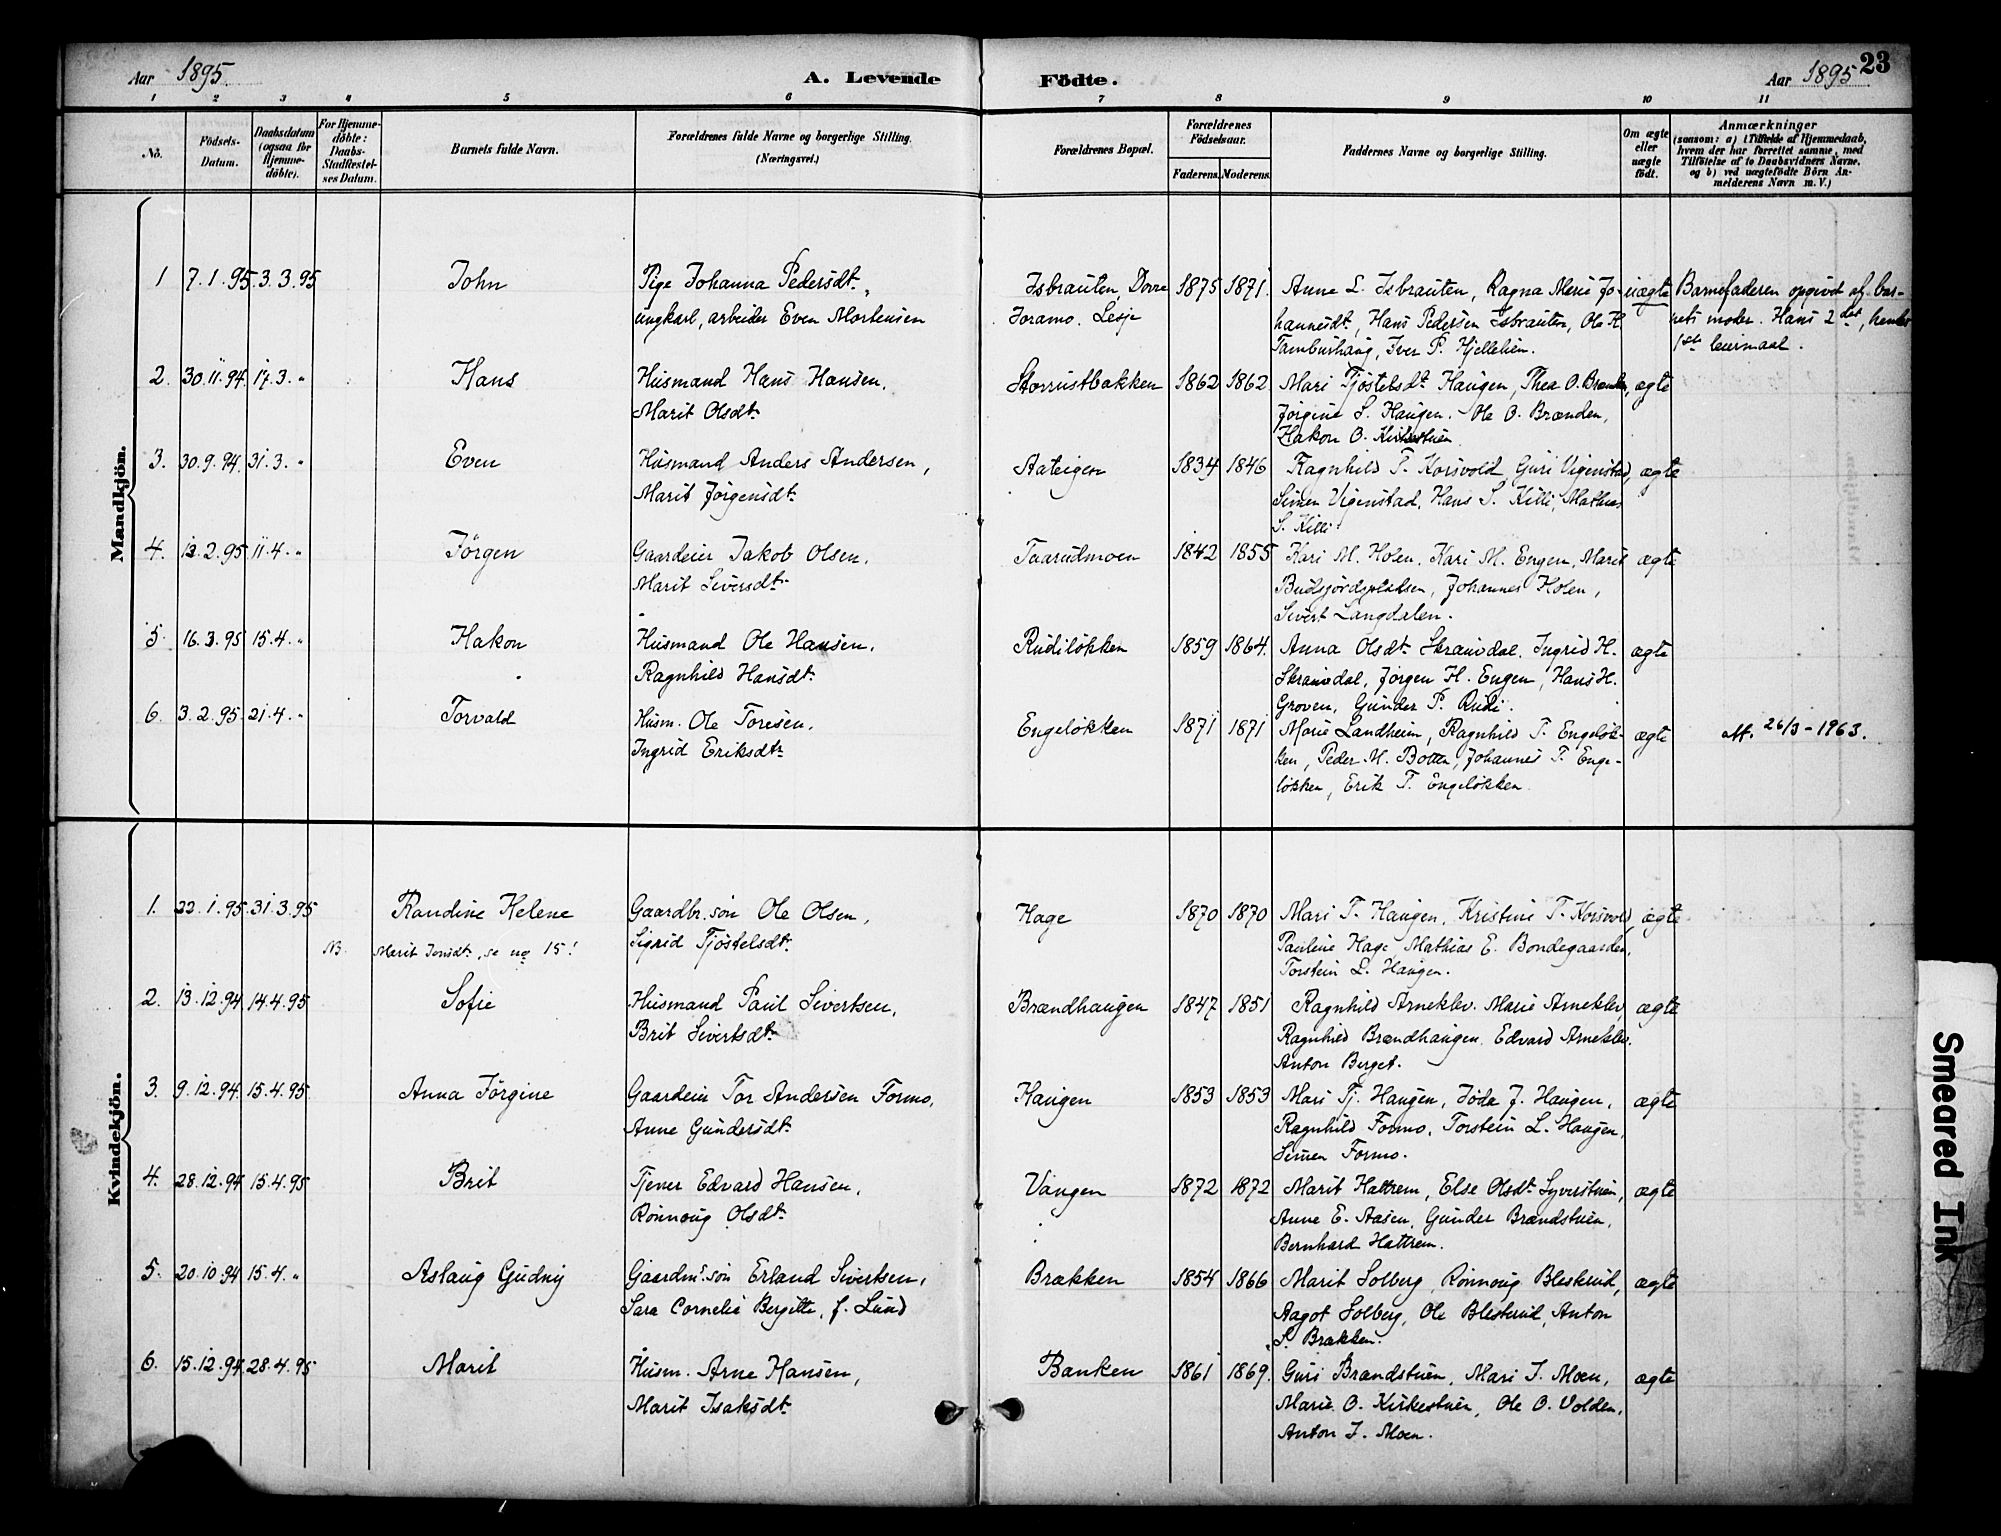 Aar 1895. A. Levende Födte. Aar 1895 23
1 2 3 4 5 6 7 8 9 10 11
No. Födsels-Datum. Daabsdatum (ogsaa for Hjemmedöbte). For Hjemmedöbte: Daabs-Stadfæstelses Datum. Barnets fulde Navn. Forældrenes fulde Navne og borgerlige Stilling. (Næringsvei.) Forældrenes Bopæl. Forældrenes Födselsaar. Faderens. Moderens. Faddernes Navne og borgerlige Stilling. Om ægte eller uægte födt. Anmærkninger
(saasom: a) i Tilfælde af Hjemmedaab, hvem der har forrettet samme, med Tilföielse af to Daabsvidners Navne, og b) ved uægtefödte Börn Anmelderens Navn m. V.)
Mandkjön.
1 7.1.95 3.3.95 John Pige Johanna Pedersdt., Isbrauten, Dovre 1875 1871. Anne L. Isbrauten, Ragna Marie Jo- uægte Barnefaderen opgivet af bar-
ungkarl, arbeider Even Mortensen Joramo. Lesje hannesdt, Hans Pedersen Isbrauten, Ole H. nets moder. Hans 2det, hendes
Tamburhaug, Iver P. Hjellelien. 1ste leiermaal.
2. 30.11.94 17.3. " Hans Husmand Hans Hansen, Storrustbakken 1862 1862 Mari Tjöstelsdt. Haugen, Thea O. Brænden, ægte
Marit Olsdt. Jörgine S. Haugen. Ole O. Brænden,
Hakon O. Kirkestuen
3. 30.9.94. 31.3. " Even Husmand Anders Andersen, Aateigen 1834 1846 Ragnhild T. Korsvold, Guri Vigenstad, ægte
Marit Jörgensdt. Simen Vigenstad, Hans S. Killi, Mathias
S. Killi
4. 13.2.95 11.4. " Jörgen Gaardeier Jakob Olsen, Taarudmoen 1842 1855 Kari M. Holen, Kari M. Engen, Marit ægte
Marit Siversdt. Budsjordspladsen, Johannes Holen,
Sivert Langdalen.
5. 16.3.95 15.4. " Hakon Husmand Ole Hansen, Rudilökken 1859 1864. Anna Olsdt. Skramdal. Ingrid H. ægte
Ragnhild Hansdt. Skramdal, Jörgen H. Engen, Hans H.
Groven, Gunder P. Rudi.
6. 3.2.95 21.4. " Torvald Husm. Ole Toresen, Engelökken 1871 1871 Marie Landheim, Ragnhild T. Engelök- ægte 26/3-1963.
Ingrid Eriksdt. ken, Peder M. Botten, Johannes T. Enge-
lökken, Erik T. Engelökken.
Kvindekjön.
1. 22.1.95 31.3.95 Randine Helene Gaardbr. sön Ole Olsen, Hage 1870 1870 Mari T. Haugen, Kristine T. Korsvold, ægte
NB. Marit Jonsdt., se no 15! Sigrid Tjöstelsdt. Pauline Hage, Mathias E. Bondegaarden,
Torstein L. Haugen.
2. 13.12.94 14.4.95 Sofie Husmand Paul Sivertsen, Brændhaugen 1847 1851 Ragnhild Arneklev. Marie Arneklev, ægte
Brit Sivertsdt. Ragnhild Brændhaugen. Edvard Arneklev.
Anton Berget.
3. 9.12.94 15.4.95 Anna Jörgine Gaardeier Tor Andersen Formo, Haugen 1853 1853 Mari Tj. Haugen, Jöda J. Haugen, ægte
Anne Gundersdt. Ragnhild Formo. Torstein L. Haugen,
Simen Formo.
4. 28.12.94 15.4.95 Brit Tjener Edvard Hansen, Vangen 1872 1872 Marit Hattrem, Else Olsdt. Syverstuen, ægte
Rönnoug Olsdt. Anne E. Aasen, Gunder Brændstuen,
Bernhard Hattrem.
5. 20.10.94 15.4. " Aslaug Gudny Gaardm. sön Erland Sivertsen, Brækken 1854 1866 Marit Solberg, Rönnoug Blesterud, ægte
Sara Cornelie Bergitte, f. Lund Aagot Solberg, Ole Blesterud, Anton
S. Brækken.
6. 15.12.94 28.4.95 Marit Husm. Arne Hansen, Banken 1861 1869. Guri Brændstuen, Mari J. Moen, ægte
Marit Isaksdt. Marie O. Kirkestuen, Ole O. Volden,
Anton J. Moen.
Smeared Ink